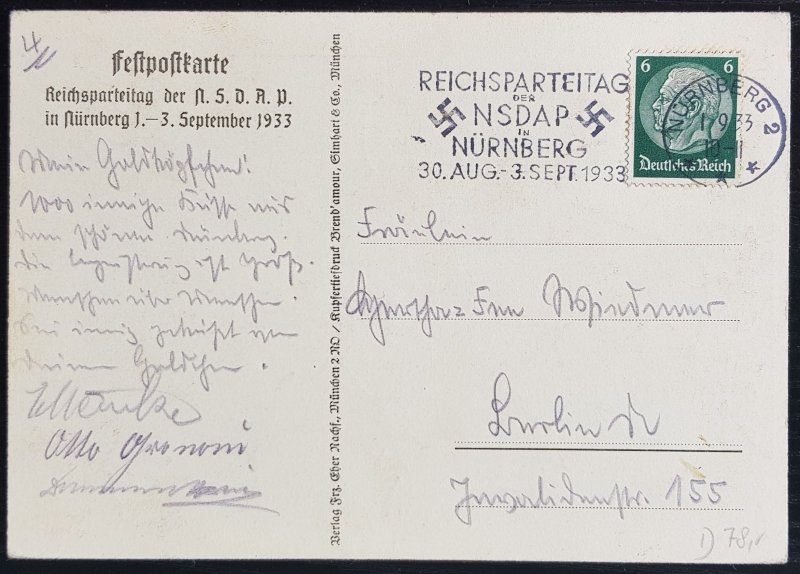 Festpostkarte
Reichsparteitag der N.S.D.A.P.
in Nürnberg 1.–3. September 1933
Mein Goldköpfchen!
1000 innige Küsse aus
dem schönen Nürnberg.
Die Begeisterung ist groß.
Menschen über Menschen.
Sei innig geküßt von
Deinem Goldchen.
Otto
Verlag Frz. Eher Nachf., München 2 NO / Kupfertiefdruck Brend'amour, Simhart & Co., München
REICHSPARTEITAG
DER
NSDAP
IN
NÜRNBERG
30. AUG.-3. SEPT. 1933
6 6
Deutsches Reich
NÜRNBERG 2
1.9.33
10-11
Fräulein
Wiedemer
Berlin N
Invalidenstr. 155
1) 78,-